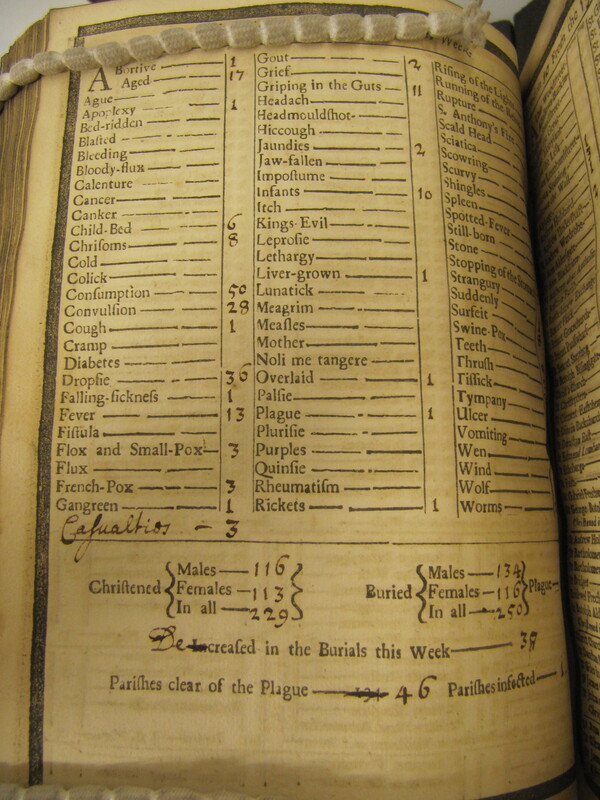 Weeke
Abortive 1
Aged 17
Ague
Apoplexy 1
Bed-ridden
Blaſted
Bleeding
Bloody-flux
Calenture
Cancer
Canker
Child-Bed 6
Chriſoms 8
Cold
Colick
Conſumption 50
Convulſion 28
Cough 1
Cramp
Diabetes
Dropſie 36
Falling-ſickneſs 1
Fever 13
Fiſtula
Flox and Small-Pox 3
Flux
French-Pox 3
Gangreen 1
Caſualtios - 3
Gout 2
Grief
Griping in the Guts 11
Headach
Headmouldſhot
Hiccough
Jaundies 2
Jaw-fallen
Impoſtume
Infants 10
Itch
Kings-Evil
Leproſie
Lethargy
Liver-grown 1
Lunatick
Meagrim
Meaſles
Mother
Noli me tangere
Overlaid 1
Palſie
Plague 1
Pluriſie
Purples
Quinſie
Rheumatiſm
Rickets 1
Riſing of the Lights
Running of the
Rupture
S. Anthony's Fire
Scald Head
Sciatica
Scowring
Scurvy
Shingles
Spleen
Spotted-Fever
Still-born
Stone
Stopping of the
Strangury
Suddenly
Surfeit
Swine-Pox
Teeth
Thruſh
Tiſſick
Tympany
Ulcer
Vomiting
Wen
Wind
Wolf
Worms
Chriſtened { Males 116
Females 113
In all 229 }
Buried { Males 134
Females 116
In all 250 } Plague
Decreaſed in the Burials this Week 38
Pariſhes clear of the Plague 46 Pariſhes infected